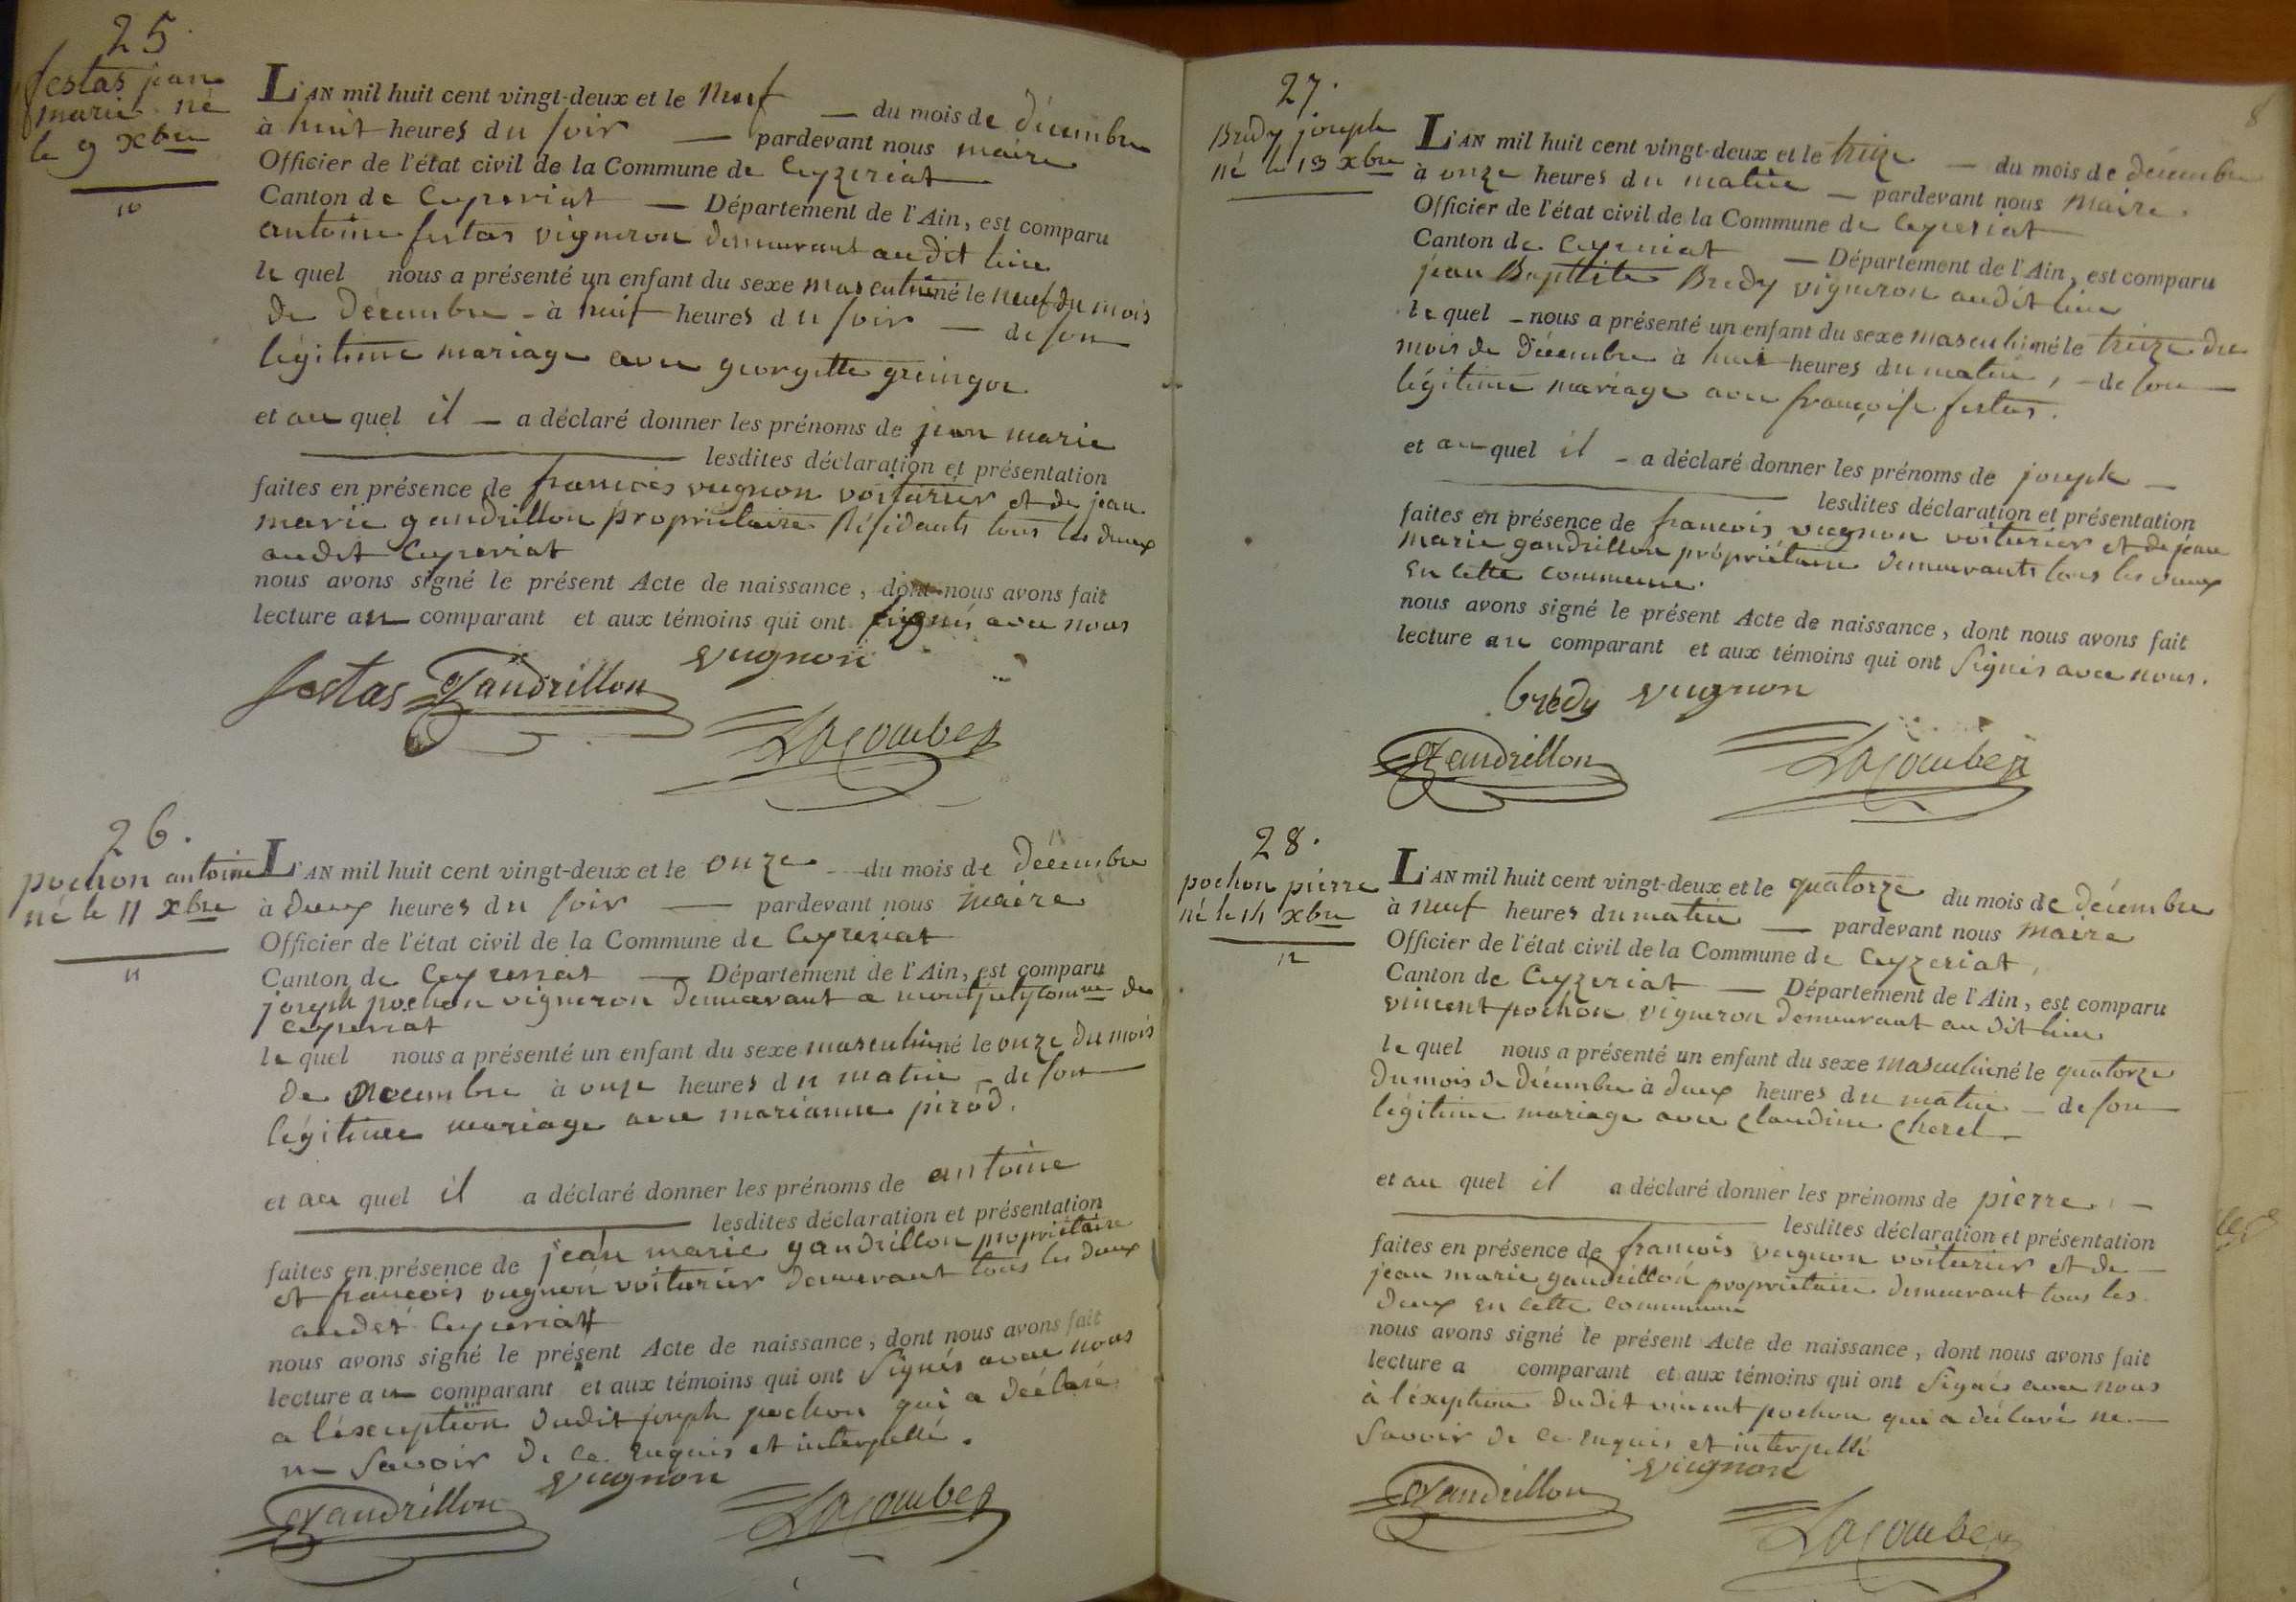 25.
festas jean
marie né
le 9 xbre
10
L'AN mil huit cent vingt-deux et le neuf — du mois de décembre
à huit heures du soir — pardevant nous maire
Officier de l'état civil de la Commune de Ceyzeriat
Canton de Ceyzeriat — Département de l'Ain, est comparu
antoine festas vigneron demeurant audit lieu
le quel nous a présenté un enfant du sexe masculin né le neuf du mois
de décembre - à huit heures du soir — de son
légitime mariage avec georgette
et au quel il — a déclaré donner les prénoms de jean marie
lesdites déclaration et présentation
faites en présence de francois vugnon voiturier et de jean
marie gandrillon propriétaire résidants tous les deux
audit Ceyzeriat
nous avons signé le présent Acte de naissance, dont nous avons fait
lecture au comparant et aux témoins qui ont signés avec nous
vugnon
festas Gandrillon
Lacombe
26.
pochon antoine
né le 11 xbre
11
L'AN mil huit cent vingt-deux et le onze — du mois de décembre
à deux heures du soir — pardevant nous maire
Officier de l'état civil de la Commune de Ceyzeriat
Canton de Ceyzeriat — Département de l'Ain, est comparu
joseph pochon vigneron demeurant a comne de
Ceyzeriat
le quel nous a présenté un enfant du sexe masculin né le onze du mois
de décembre à onze heures du matin — de son
légitime mariage avec marianne pirod.
et au quel il a déclaré donner les prénoms de antoine
lesdites déclaration et présentation
faites en présence de jean marie gandrillon propriétaire
et francois vugnon voiturier demeurant tous les deux
audit Ceyzeriat
nous avons signé le présent Acte de naissance, dont nous avons fait
lecture au comparant et aux témoins qui ont signés avec nous
a l'exception dudit joseph pochon qui a déclaré
ne savoir de ce enquis et interpellé.
vugnon
Gandrillon Lacombe
8
27.
Bredy joseph
né le 13 xbre
L'AN mil huit cent vingt-deux et le treize — du mois de décembre
à onze heures du matin — pardevant nous maire.
Officier de l'état civil de la Commune de Ceyzeriat
Canton de Ceyzeriat — Département de l'Ain, est comparu
jean Baptiste Bredy vigneron audit lieu
le quel - nous a présenté un enfant du sexe masculin né le treize du
mois de décembre à huit heures du matin, - de son —
légitime mariage avec françoise festas.
et au quel il - a déclaré donner les prénoms de joseph —
lesdites déclaration et présentation
faites en présence de francois vugnon voiturier et de jean
marie gandrillon propriétaire demeurants tous les deux
en cette commune.
nous avons signé le présent Acte de naissance, dont nous avons fait
lecture au comparant et aux témoins qui ont signés avec nous.
bredy vugnon
Gandrillon Lacombe
28.
pochon pierre
né le 14 xbre
12
L'AN mil huit cent vingt-deux et le quatorze du mois de décembre
à neuf heures du matin — pardevant nous maire
Officier de l'état civil de la Commune de Ceyzeriat,
Canton de Ceyzeriat — Département de l'Ain, est comparu
vincent pochon vigneron demeurant audit lieu
le quel nous a présenté un enfant du sexe masculin né le quatorze
du mois de décembre à deux heures du matin — de son —
légitime mariage avec claudine chorel
et au quel il a déclaré donner les prénoms de pierre —
lesdites déclaration et présentation
faites en présence de francois vugnon voiturier et de —
jean marie gandrillon propriétaire demeurant tous les
deux en cette commune
nous avons signé le présent Acte de naissance, dont nous avons fait
lecture a comparant et aux témoins qui ont signés avec nous
à l'exeption dudit vincent pochon qui a déclaré ne —
savoir de ce enquis et interpellé
vugnon
Gandrillon
Lacombe